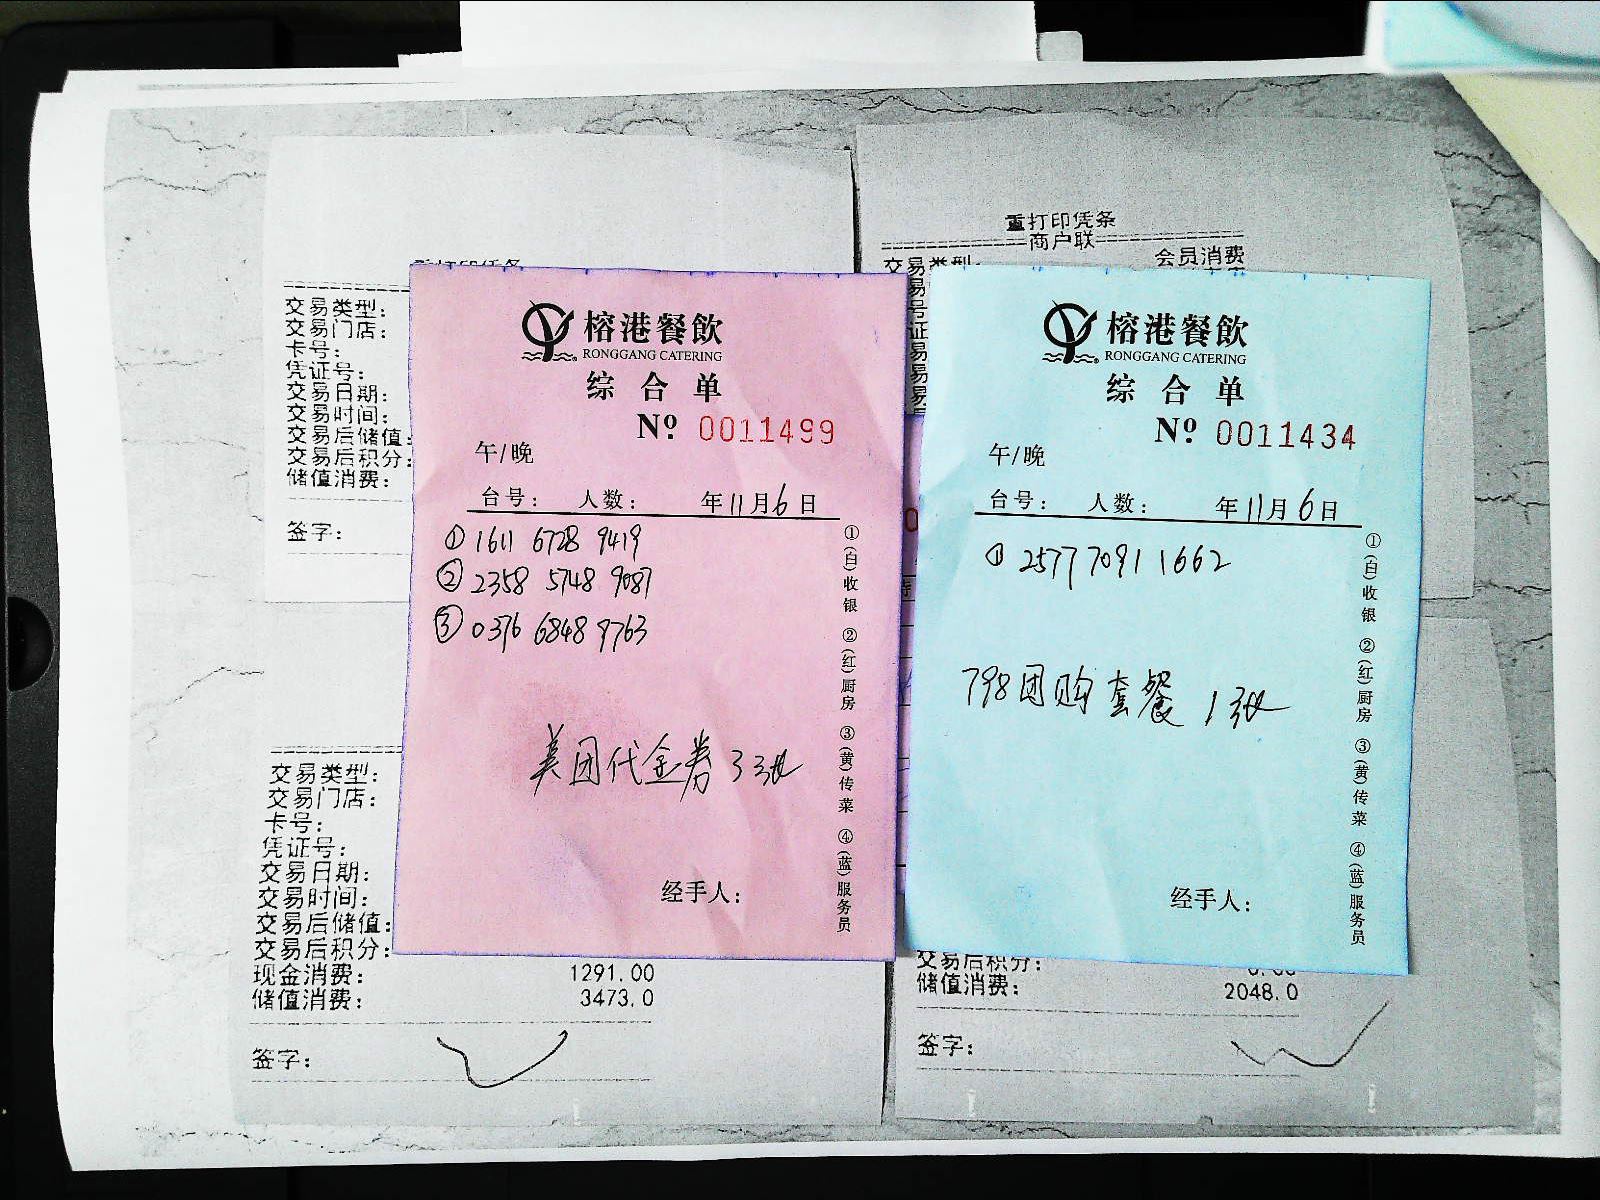 重打印凭条
交易类型:
交易门店:
卡号:
凭证号:
交易日期:
交易时间:
交易后储值:
交易后积分:
储值消费:
签字:
重打印凭条
商户联
交易类型:
会员消费
榕港餐飲
RONGGANG CATERING
综合单
Nº 0011499
午/晚
台号: 人数: 年11月6日
① 1611 6728 9419
② 2358 5748 9087
③ 0376 6848 9763
美团代金券3张
经手人:
①(白)收银 ②(红)厨房 ③(黄)传菜 ④(蓝)服务员
榕港餐飲
RONGGANG CATERING
综合单
Nº 0011434
午/晚
台号: 人数: 年11月6日
① 2577 7091 1662
798团购套餐1张
经手人:
①(白)收银 ②(红)厨房 ③(黄)传菜 ④(蓝)服务员
交易类型:
交易门店:
卡号:
凭证号:
交易日期:
交易时间:
交易后储值:
交易后积分:
现金消费: 1291.00
储值消费: 3473.0
签字:
交易后积分: 0.00
储值消费: 2048.0
签字: